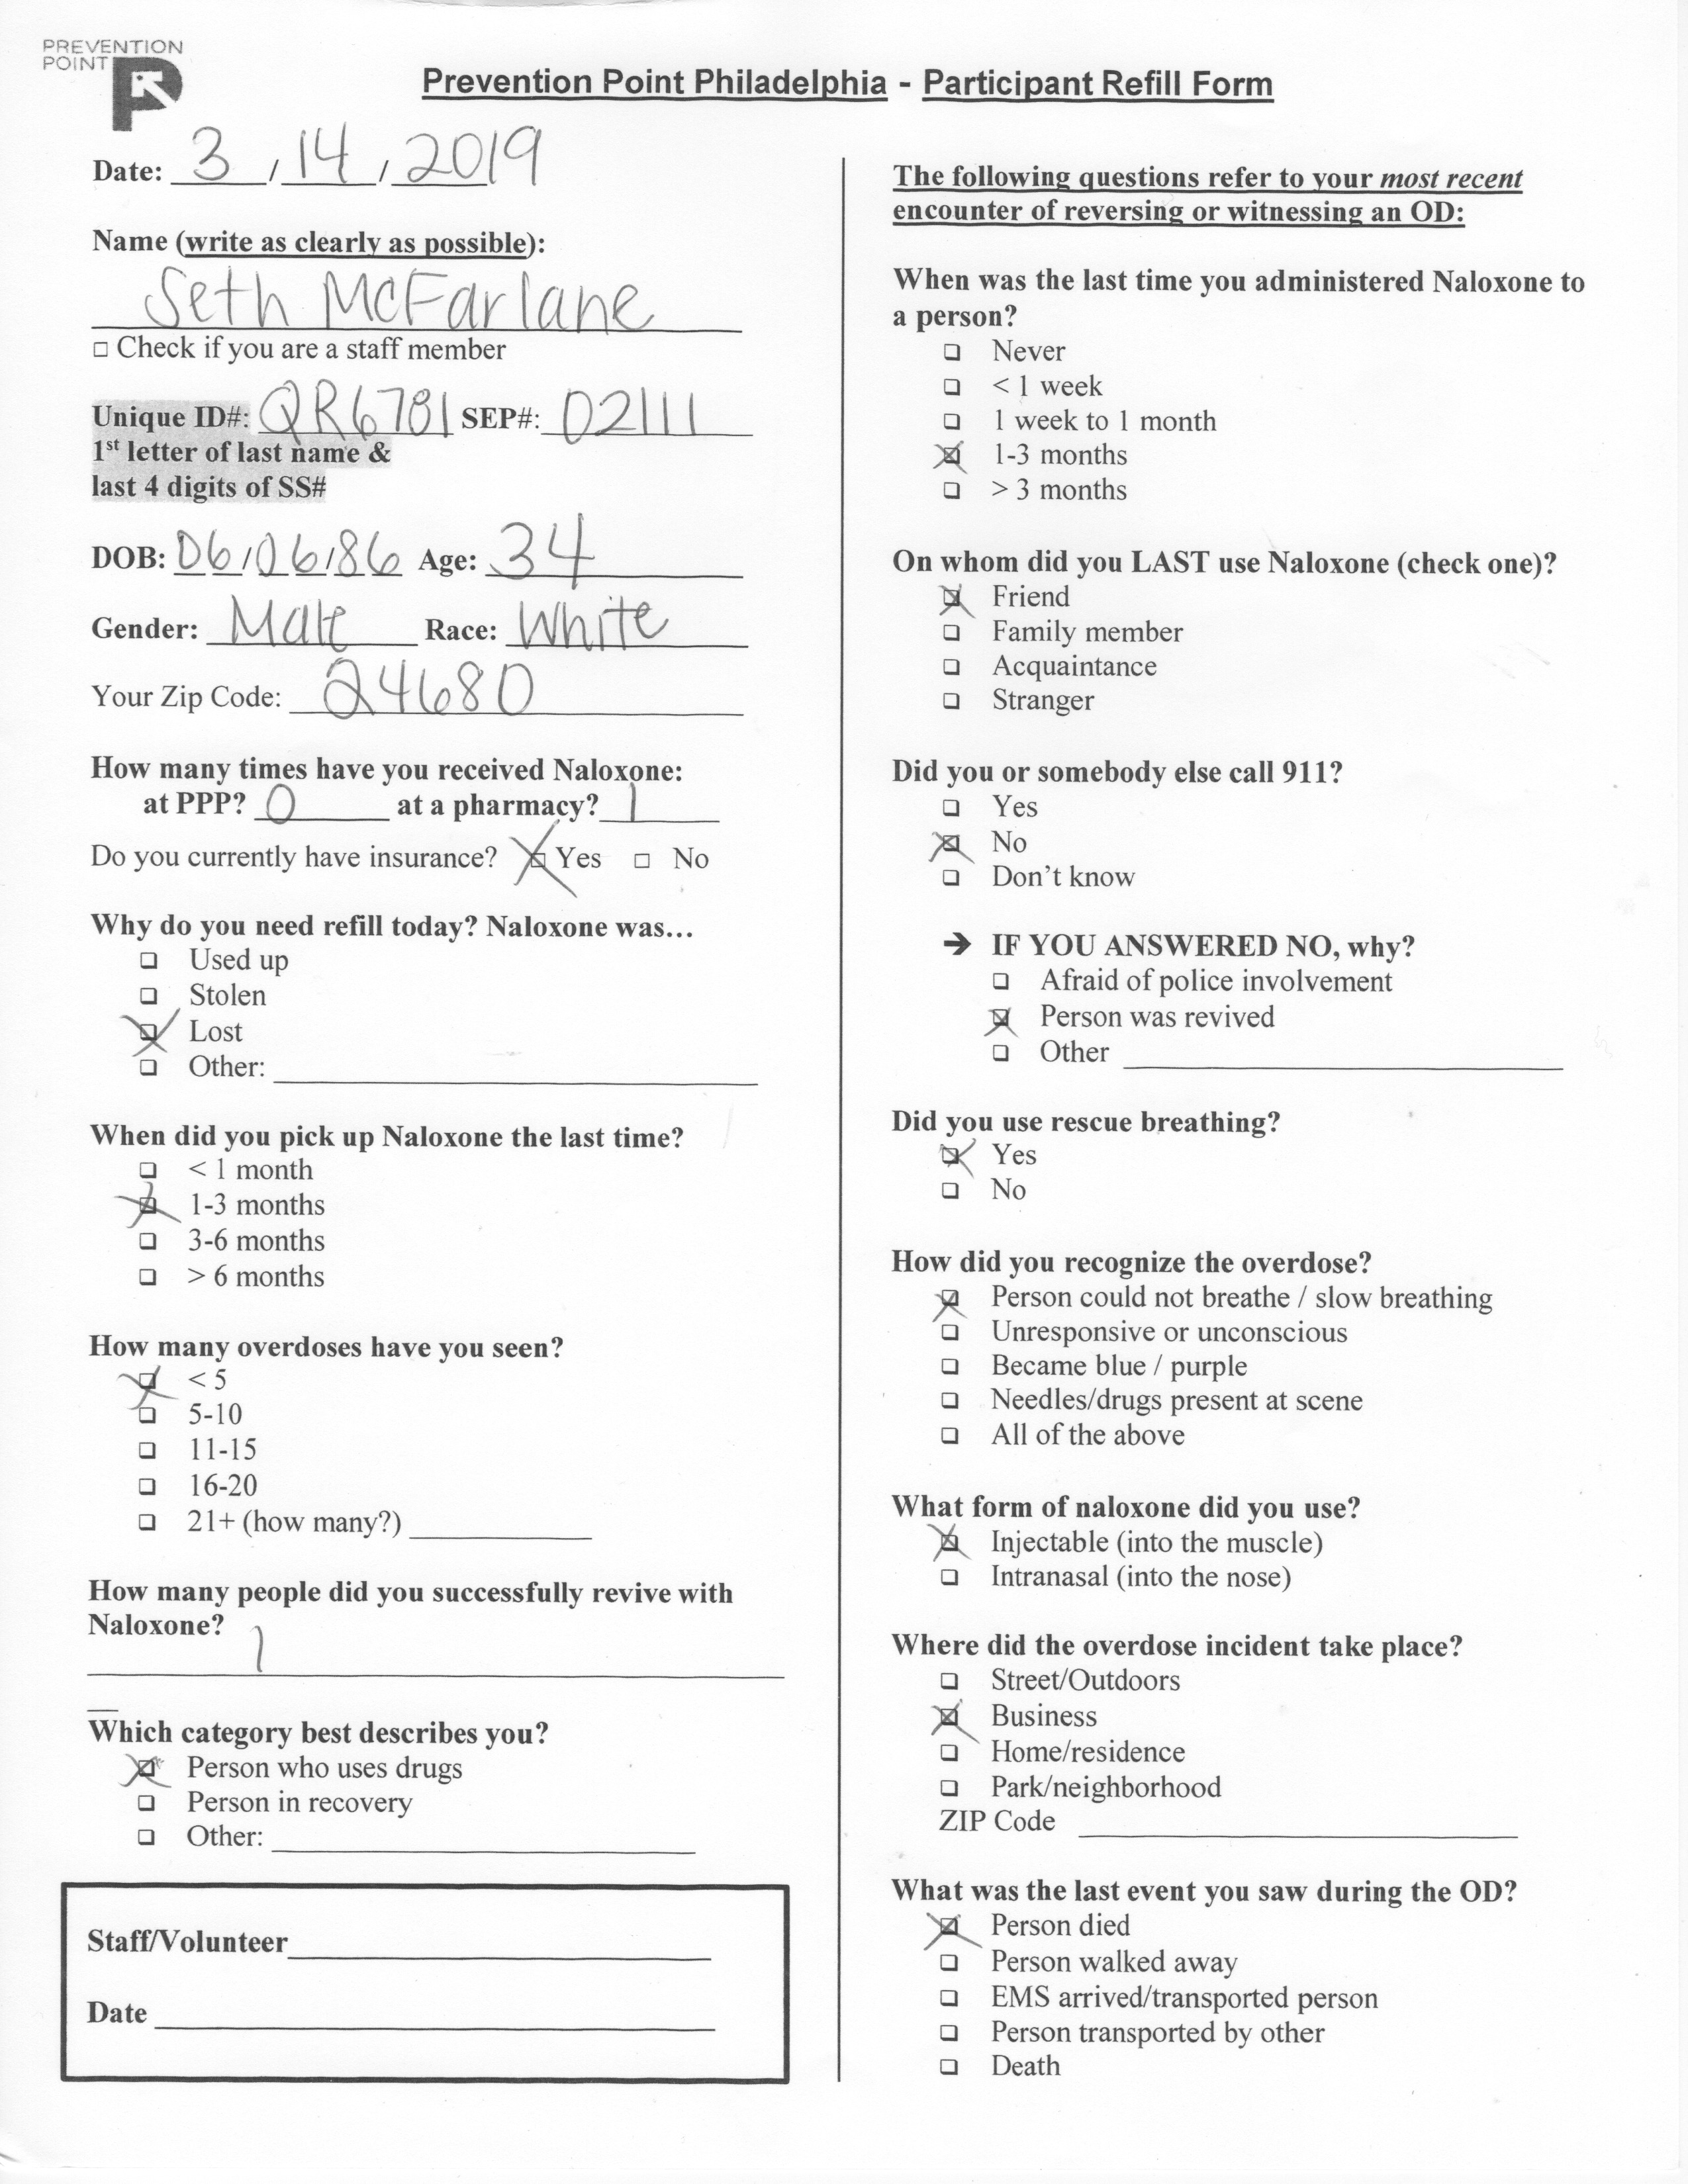 PREVENTION
POINT
Prevention Point Philadelphia - Participant Refill Form
Date: 3 / 14 / 2019
Name (write as clearly as possible):
Seth McFarlane
□ Check if you are a staff member
Unique ID#: QR6781 SEP#: 02111
1st letter of last name &
last 4 digits of SS#
DOB: 06/06/86 Age: 34
Gender: Male Race: White
Your Zip Code: 24680
How many times have you received Naloxone:
at PPP? 0 at a pharmacy? 1
Do you currently have insurance? ☒ Yes □ No
Why do you need refill today? Naloxone was...
❑ Used up
❑ Stolen
☒ Lost
❑ Other:
When did you pick up Naloxone the last time?
❑ < 1 month
☒ 1-3 months
❑ 3-6 months
❑ > 6 months
How many overdoses have you seen?
☒ < 5
❑ 5-10
❑ 11-15
❑ 16-20
❑ 21+ (how many?)
How many people did you successfully revive with
Naloxone?
1
Which category best describes you?
☒ Person who uses drugs
❑ Person in recovery
❑ Other:
Staff/Volunteer
Date
The following questions refer to your most recent
encounter of reversing or witnessing an OD:
When was the last time you administered Naloxone to
a person?
❑ Never
❑ < 1 week
❑ 1 week to 1 month
☒ 1-3 months
❑ > 3 months
On whom did you LAST use Naloxone (check one)?
☒ Friend
❑ Family member
❑ Acquaintance
❑ Stranger
Did you or somebody else call 911?
❑ Yes
☒ No
❑ Don't know
➔ IF YOU ANSWERED NO, why?
❑ Afraid of police involvement
☒ Person was revived
❑ Other
Did you use rescue breathing?
☒ Yes
❑ No
How did you recognize the overdose?
☒ Person could not breathe / slow breathing
❑ Unresponsive or unconscious
❑ Became blue / purple
❑ Needles/drugs present at scene
❑ All of the above
What form of naloxone did you use?
☒ Injectable (into the muscle)
❑ Intranasal (into the nose)
Where did the overdose incident take place?
❑ Street/Outdoors
☒ Business
❑ Home/residence
❑ Park/neighborhood
ZIP Code
What was the last event you saw during the OD?
☒ Person died
❑ Person walked away
❑ EMS arrived/transported person
❑ Person transported by other
❑ Death